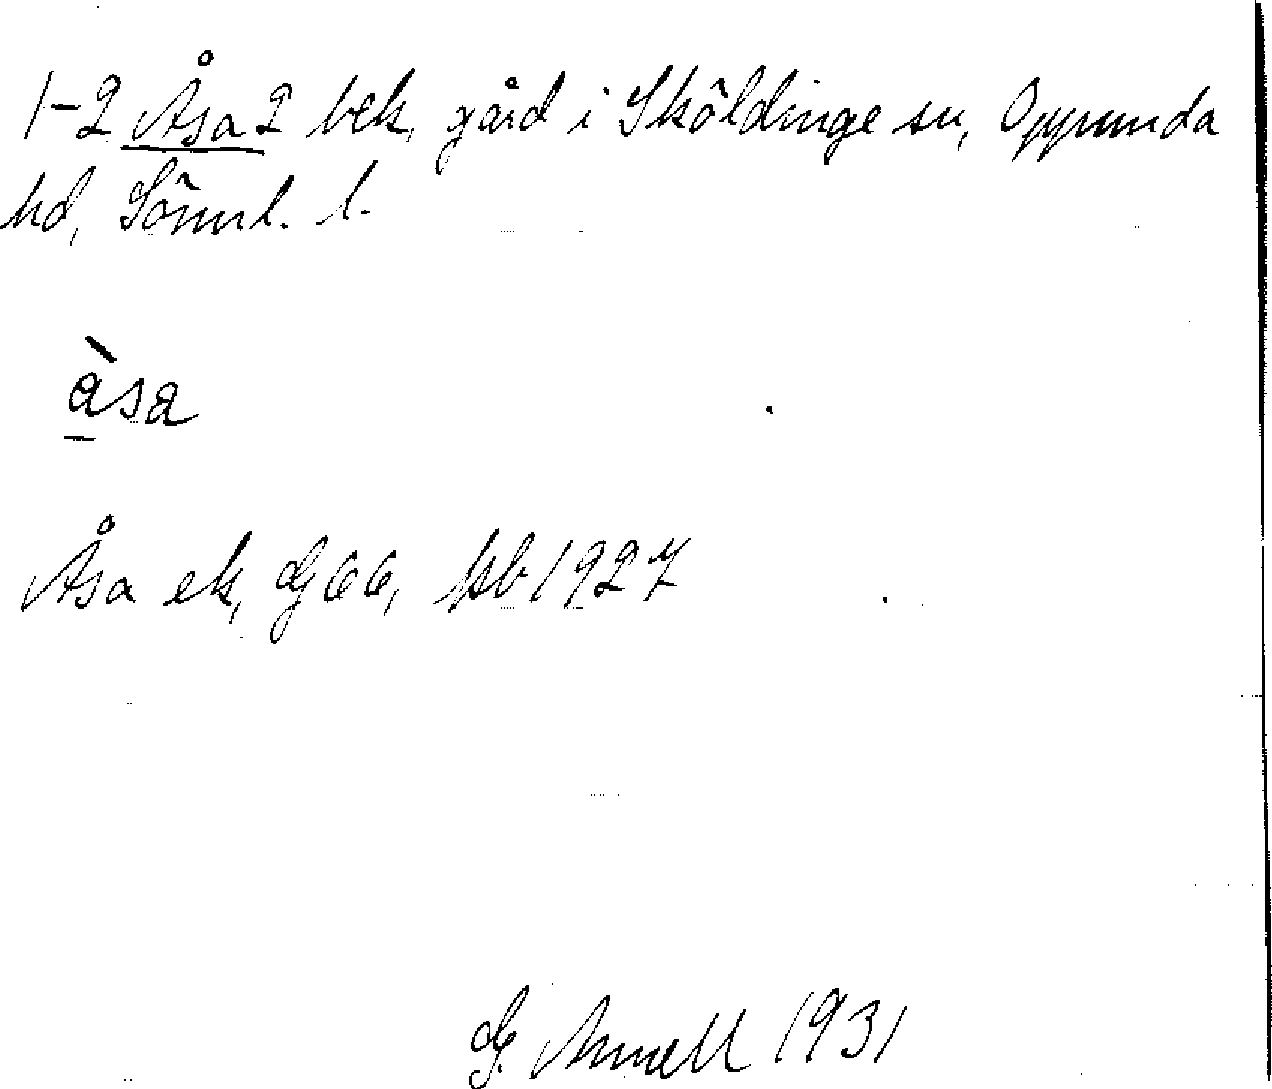 1-2 Åsa 2 bek, gård i Sköldinge sn, Oppunda
hd, Södml. l.
åsa
Åsa ek, G 66, hsb 1927
G. Annell 1931